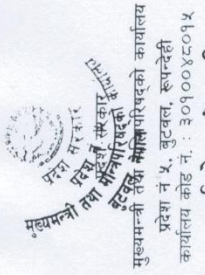 प्रदेश सरकार
प्रदेश सरकार
मुख्यमन्त्री तथा मन्त्रिपरिषद्को कार्यालय
बुटवल, नेपाल
मुख्यमन्त्री तथा मन्त्रिपरिषद्को कार्यालय
प्रदेश नं ५, बुटवल, रुपन्देही
कार्यालय कोड नं. : ३०१००४८०१५